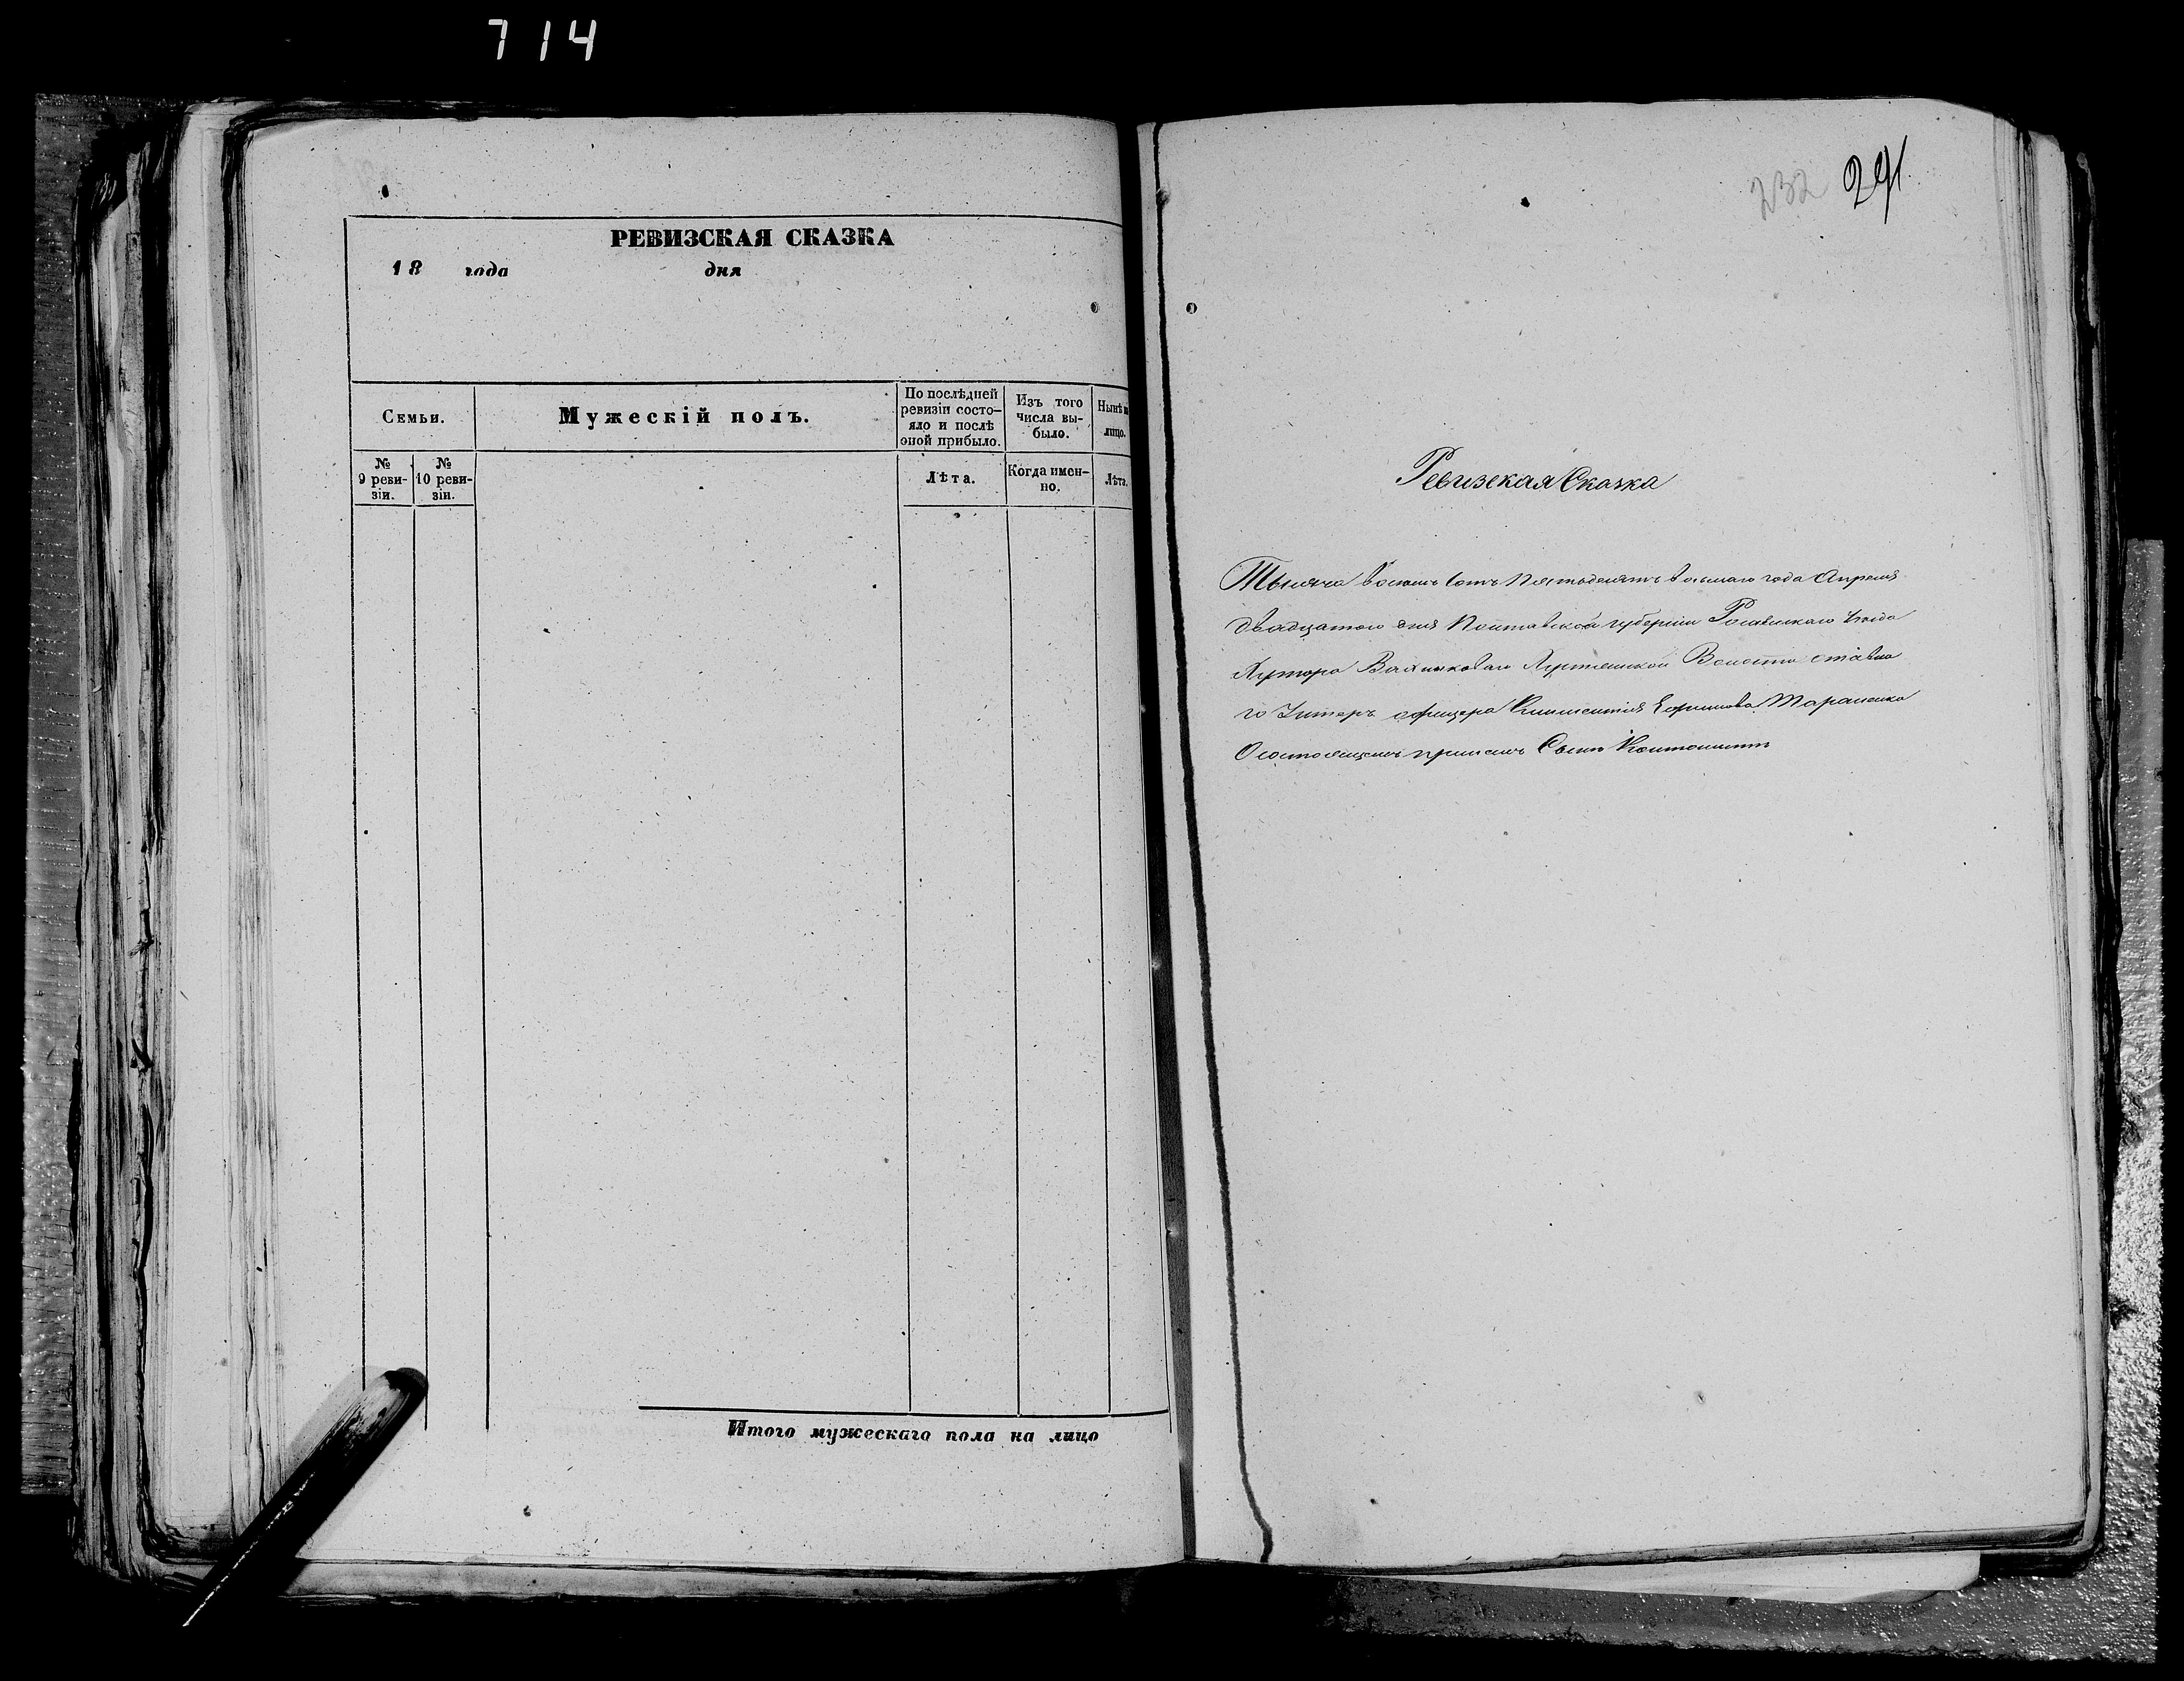 714
РЕВИЗСКАЯ СКАЗКА
18 года дня
Семьи.
Мужескій полъ.
По послѣдней ревизіи состо-
яло и послѣ оной прибыло.
Изъ того числа вы-
было.
Нынѣ на лицо.
№ 9 реви-
зіи.
№ 10 реви-
зіи.
Лѣта.
Когда имен-
но.
Лѣта.
Итого мужескаго пола на лицо
232 241
Ревизская Сказка
Тысяча восемь сотъ пятьдесятъ восьмаго года Апреля
двадцатого дня Полтавской губерніи Роменскаго уезда
Хутора Волости отставно
го Унтеръ офицера Климентія Ефимова Тараненко
О состоящемъ при немъ Сыне Кантонисте